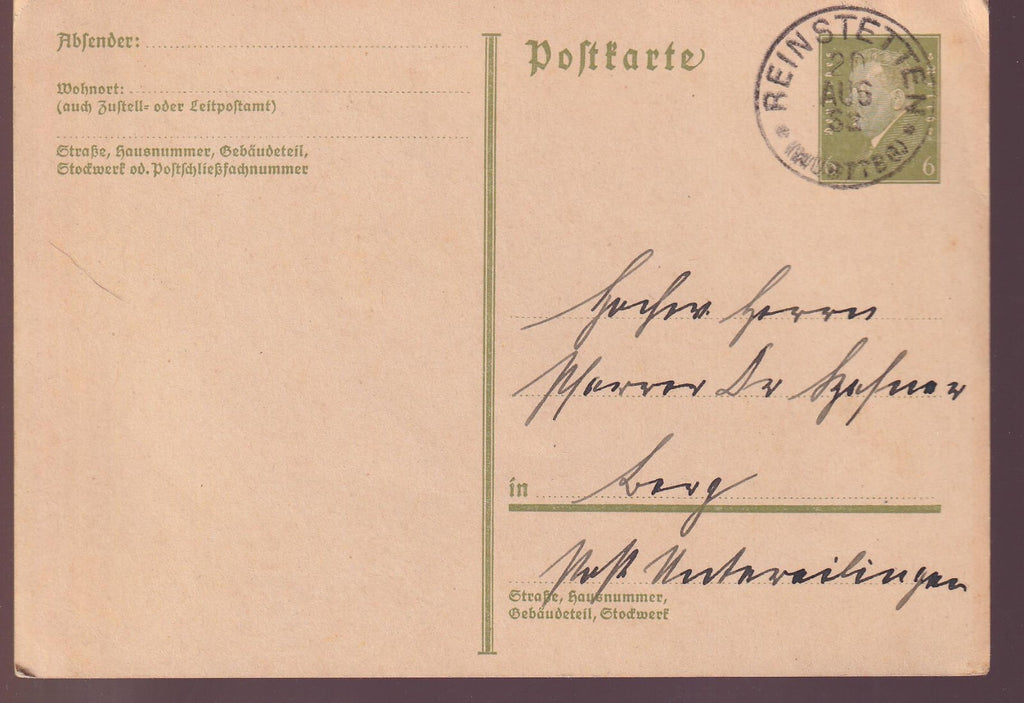 Absender:
Wohnort:
(auch Zustell- oder Leitpostamt)
Straße, Hausnummer, Gebäudeteil,
Stockwerk od. Postschließfachnummer
Postkarte
REINSTETTEN
20
AUG
32
(WÜRTTBG)
6
Hochw. Herrn
Pfarrer Dr Hafner
in Berg
Post
Straße, Hausnummer,
Gebäudeteil, Stockwerk